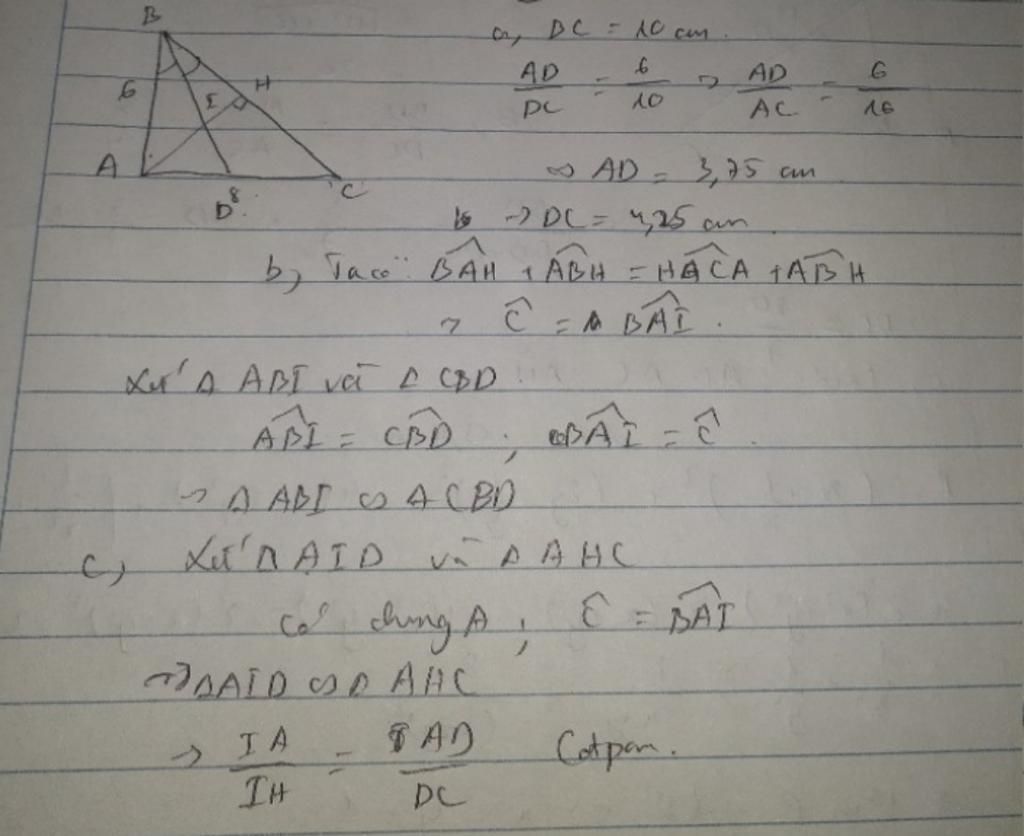 B
6
I
H
A
D
8
C
a, DC = 10 cm.
AD/DC = 6/10 → AD/AC = 6/16
⇔ AD = 3,75 cm
→ DC = 4,25 cm.
b, Ta có: BAH + ABH = HACA + ABH
→ Ĉ = BAI.
Xét Δ ABI và Δ CBD.
ABI = CBD ; BAI = Ĉ.
→ Δ ABI ∽ Δ CBD
c, Xét Δ AID và Δ AHC
có chung A ; Ĉ = BAI
→ Δ AID ∽ Δ AHC
→ IA/IH = AD/DC